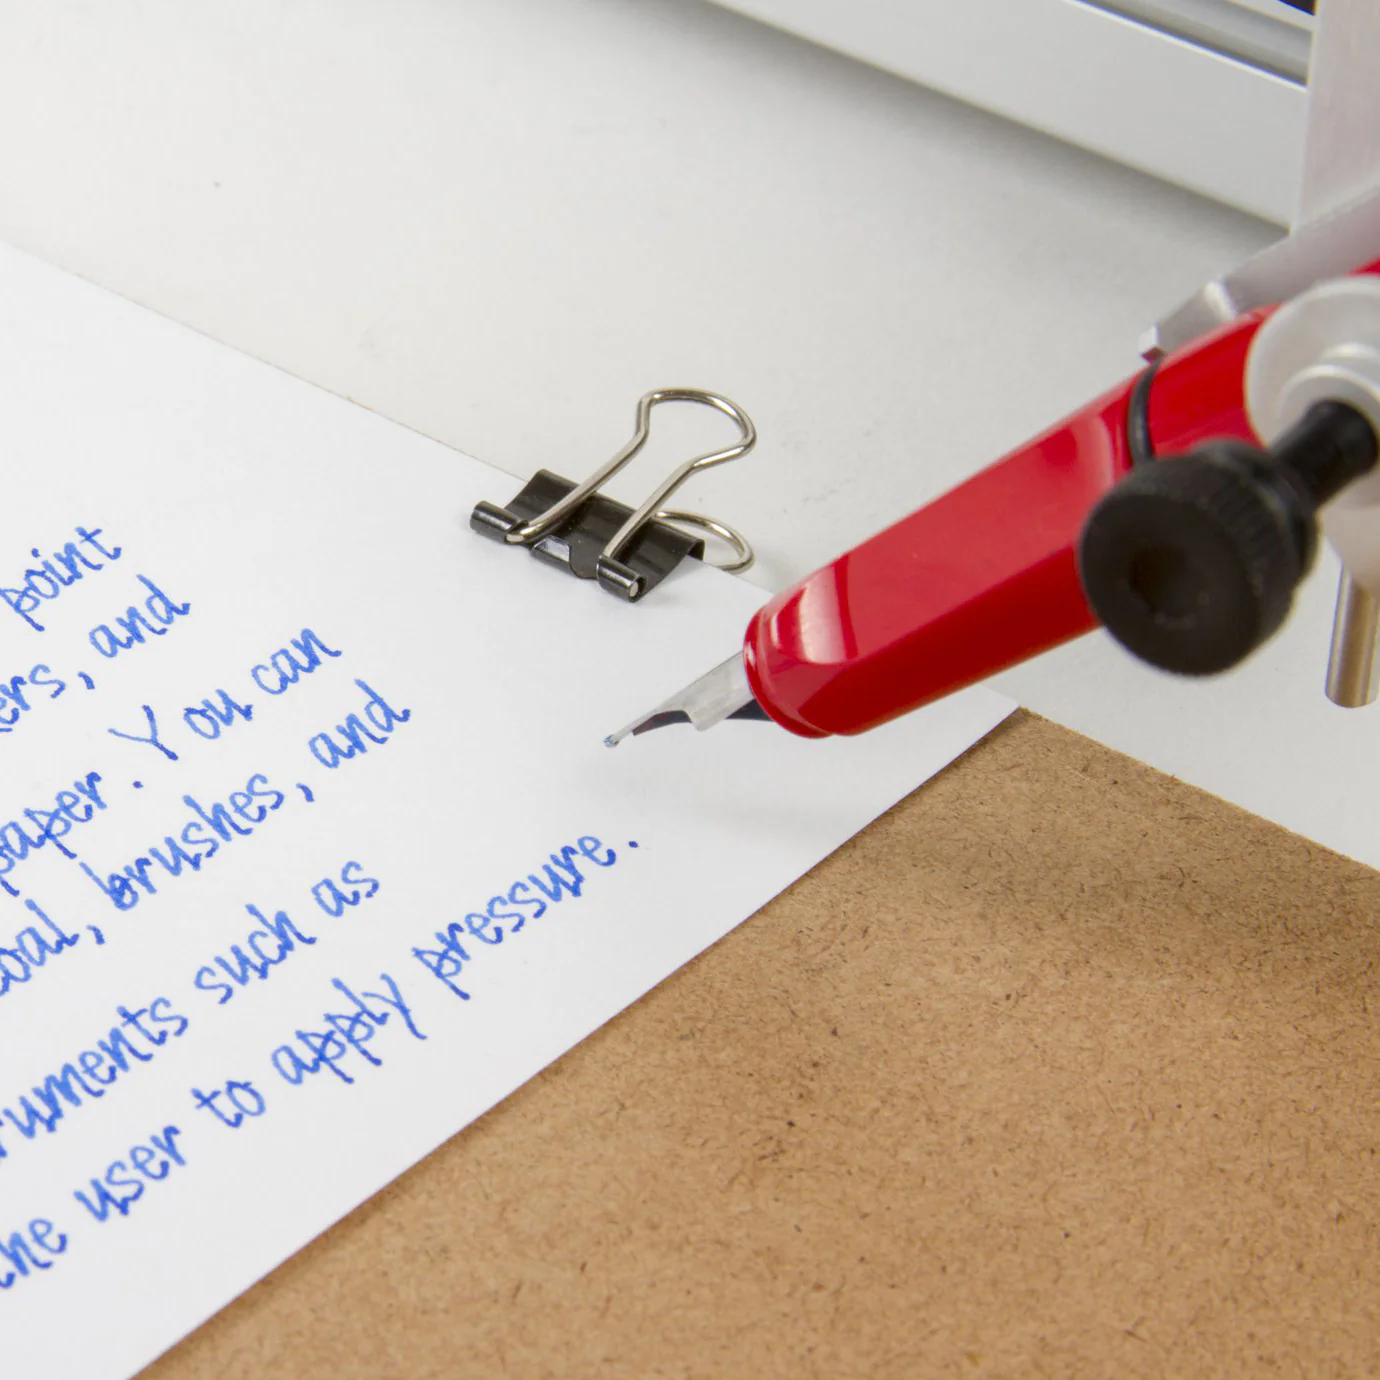 point
ers, and
paper. You can
coal, brushes, and
ruments such as
the user to apply pressure.